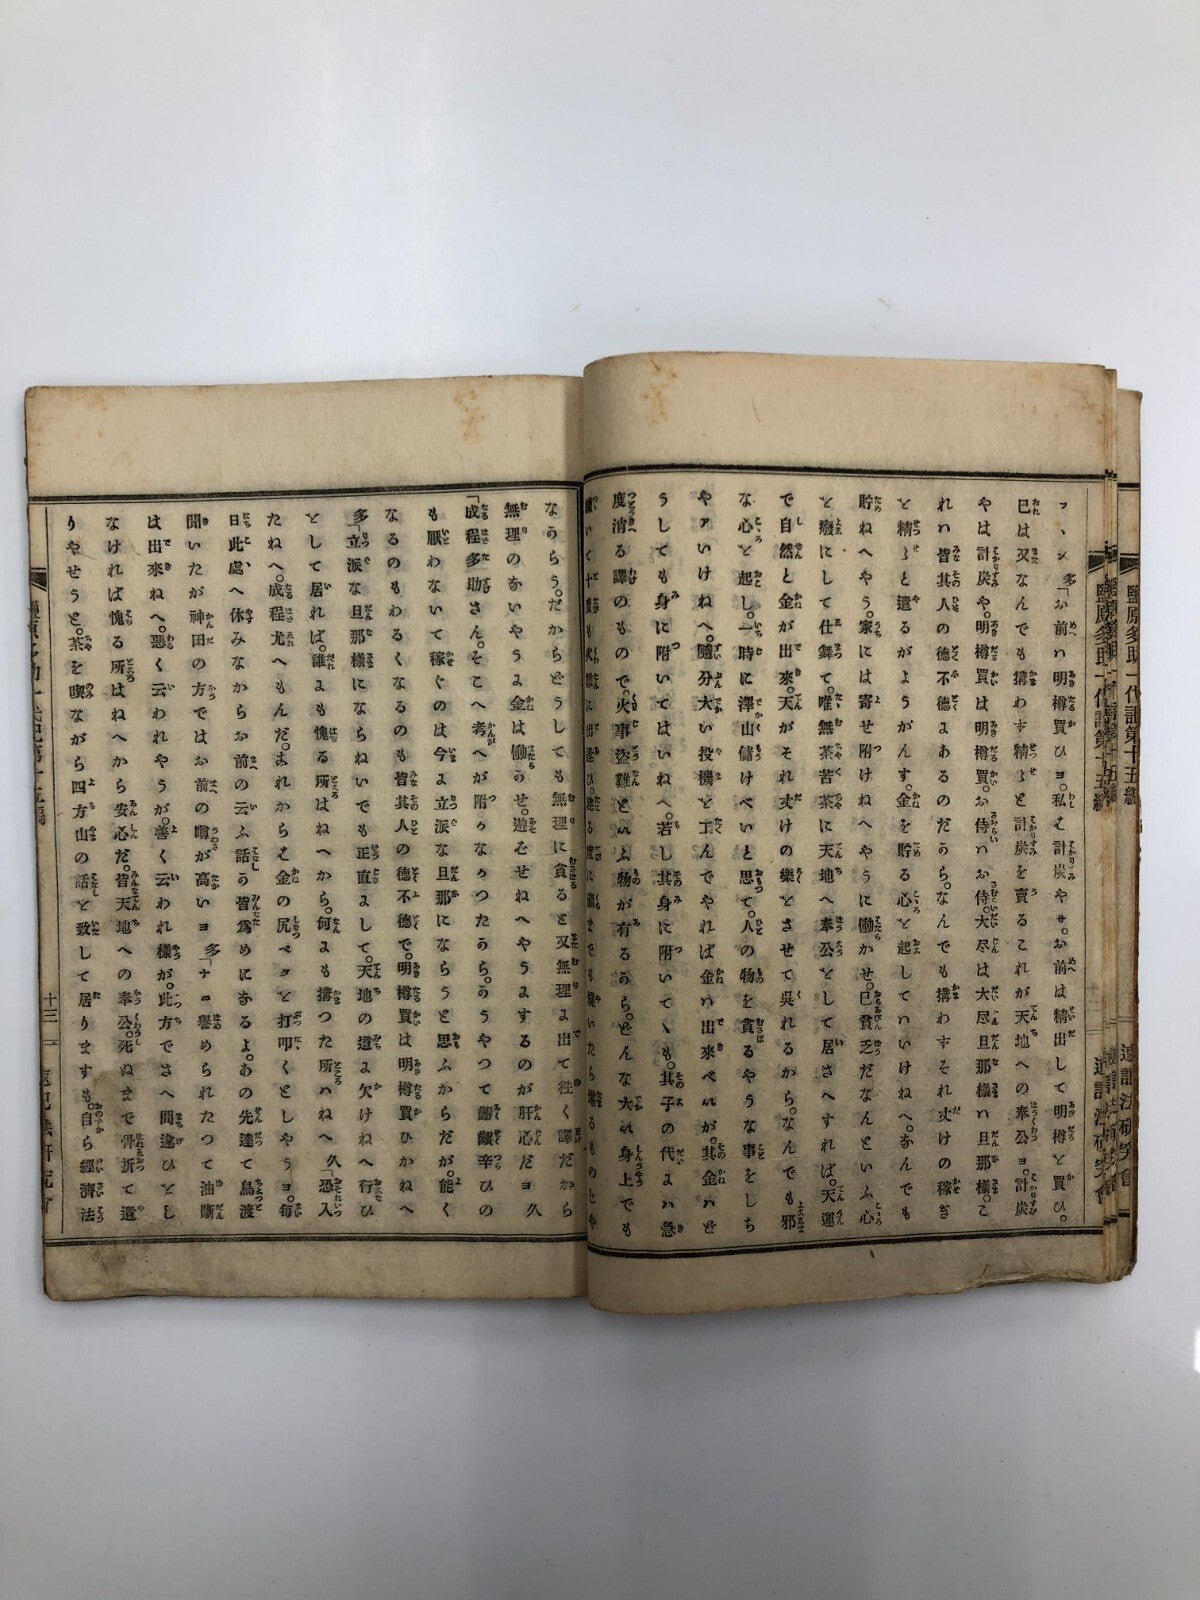 鹽原多助一代記第十五編
速記法研究會
フヽン多「お前ハ明樽買ひヨ。私も計炭やサ。お前は精出して明樽を買ひ。
已は又なんでも搆わず精々と計炭を賣るこれが天地への奉公ヨ。計炭
やは計炭や。明樽買は明樽買。お侍ハお侍。大尽は大尽旦那様ハ旦那様。こ
れハ皆其人の徳不徳よあるのだらう。なんでも搆わずそれ丈けの稼ぎ
と精々と遣るがようがんす。金を貯る心を起していけねへ。なんでも
貯ねへやう。家には寄せ附けねへやうに働かせ。已貧乏だなんといふ心
を癈にして仕舞て。唯無茶苦茶に天地へ奉公をして居さへすれば。天運
で自然と金が出來。天がそれ丈けの樂をさせて呉れるから。なんでも邪
な心を起し。一時に澤山儲けべいと思て。人の物を貪るやうな事をしち
やアいけねへ。隨分大い投機を工んでやれば金ハ出來べいが。其金ハど
うしても身に附いてはいねへ。若し其身に附いても。其子の代よハ急
度消る譯のもので。火事盗難といふ物が有るうら。どんな大い身上でも
續いて十度も火難に出逢ひ。
ならう。だからどうしても無理に貪ると又無理よ出て往く譯だから
無理のないやうよ金は働らせ。遊ばせねへやうよするのが肝心だヨ久
「成程多助さん。そこへ考へが附かなかつたうら。かうやつて齷齪辛ひの
も厭わないて稼ぐのは今よ立派な旦那にならうと思ふからだが。能く
なるのもわるくなるのも皆其人の徳不徳で。明樽買は明樽買ひかねへ
多「立派な旦那様にならねいでも正直よして。天地の道よ欠けねへ行ひ
をして居れば。誰よも愧る所はねへから。何よも搆つた所ハねへ久「恐入
たねへ。成程尤へもんだ。これからも金の尻べタを打叩くとしやうヨ。毎
日此處へ休みながらお前の云ふ話う皆爲めになるよ。あの先達て鳥渡
聞いたが神田の方ではお前の噂が高いヨ多「ナニ譽められたつて油斷
は出來ねへ。惡く云われやうが。善く云われ様が。此方でさへ間違ひをし
なければ愧る所はねへから安心だ。皆天地への奉公。死ぬまで骨折て遣
りやせうと。茶を喫ながら四方山の話を致して居りますも。自ら經濟法
十三